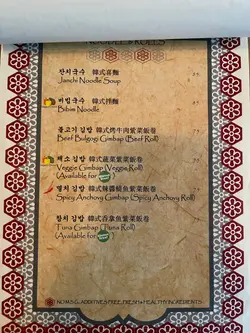 NOODLES & ROLLS
잔치국수 韓式喜麵
Janchi Noodle Soup
비빔국수 韓式拌麵
Bibim Noodle
불고기 김밥 韓式烤牛肉紫菜飯卷
Beef Bulgogi Gimbap (Beef Roll)
채소 김밥 韓式蔬菜紫菜飯卷
Veggie Gimbap (Veggie Roll)
(Available for
멸치 김밥 韓式辣醬鯷魚紫菜飯卷
Spicy Anchovy Gimbap (Spicy Anchovy Roll)
참치 김밥 韓式吞拿魚紫菜飯卷
Tuna Gimbap (Tuna Roll)
(Available for
NO M.S.G., ADDITIVES FREE, FRESH & HEALTHY INGREDIENTS